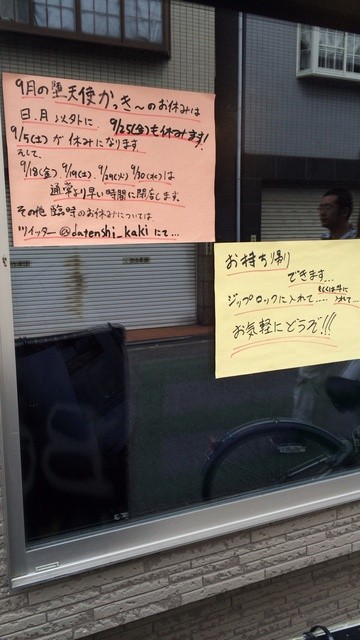 9月の堕天使かっき～のお休みは
日.月 以外に 9/25(金)も休みます!
9/5(土)が休みになります
そして、
9/18(金)、9/19(土)、9/29(火) 9/30(水)は
通常より早い時間に閉店します。
その他 臨時のお休みについては
ツイッター@datenshi_kakiにて...
お持ち帰り
できます...
ジップロックに入れて....
入れて...
お気軽にどうぞ!!!